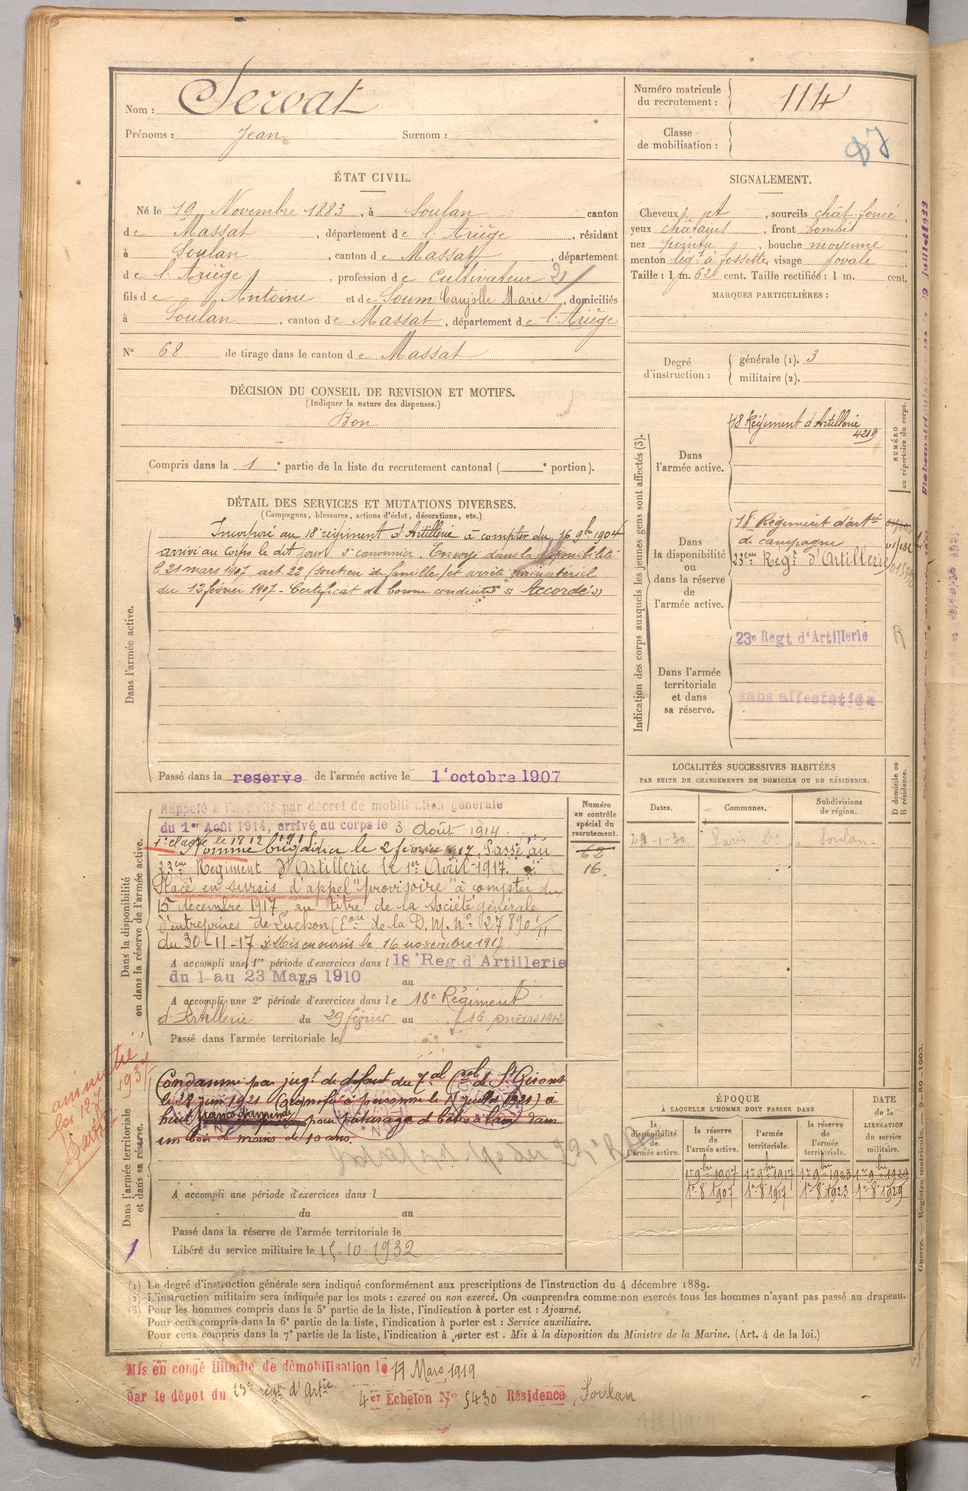 Nom : Servat
Prénoms : Jean Surnom :
ÉTAT CIVIL.
Né le 19 Novembre 1883, à Soulan canton
de Massat, département de l'Ariège, résidant
à Soulan, canton de Massat, département
de l'Ariège, profession de Cultivateur
fils de Antoine et de Soum Caujolle Marie, domiciliés
à Soulan, canton de Massat, département de l'Ariège
N° 68 de tirage dans le canton de Massat
DÉCISION DU CONSEIL DE REVISION ET MOTIFS.
(Indiquer la nature des dispenses.)
Bon
Compris dans la 1e partie de la liste du recrutement cantonal ( e portion).
Numéro matricule
du recrutement : 114
Classe
de mobilisation :
SIGNALEMENT.
Cheveux jet, sourcils chât. foncé,
yeux châtains, front bombé
nez pointu, bouche moyenne
menton à fossette, visage ovale
Taille : 1 m. 62 cent. Taille rectifiée : 1 m. cent.
MARQUES PARTICULIÈRES :
Degré
d'instruction :
générale (1). 3
militaire (2).
DÉTAIL DES SERVICES ET MUTATIONS DIVERSES.
(Campagnes, blessures, actions d'éclat, décorations, etc.)
Dans l'armée active.
Incorporé au 18e régiment d'Artillerie à compter du 16 9bre 1904
arrivé au corps le dit jour 2e canonnier. Envoyé dans la disponibilité
le 21 mars 1907 art. 22 (soutien de famille) et arrêté ministériel
du 12 février 1907 - Certificat de bonne conduite "Accordé"
Passé dans la reserve de l'armée active le 1er octobre 1907
Indication des corps auxquels les jeunes gens sont affectés (3).
Dans
l'armée active.
18 Régiment d'Artillerie
4219
NUMÉRO
au répertoire du corps.
Dans
la disponibilité
ou
dans la réserve
de
l'armée active.
18 Régiment d'artie
de campagne
33ème Regt d'Artillerie
Dans l'armée
territoriale
et dans
sa réserve.
23e Regt d'Artillerie
sans affectation
R
LOCALITÉS SUCCESSIVES HABITÉES
PAR SUITE DE CHANGEMENTS DE DOMICILE OU DE RÉSIDENCE.
Dates. Communes. Subdivisions
de région.
D domicile ou
R résidence.
Soulan
Dans la disponibilité
ou dans la réserve de l'armée active.
Numéro
au contrôle
spécial du
recrutement.
62
16.
Rappelé à l'activité par décret de mobilisation générale
du 1er Août 1914, arrivé au corps le 3 Août 1914.
Nommé brigadier le 2 février 1917. Passé au
33ème Regiment d'Artillerie le 1er Avril 1917.
Placé en sursis d'appel "provisoire" à compter du
15 décembre 1917 au titre de la Société générale
d'entreprises de Luchon
du 30-11-17
A accompli une 1re période d'exercices dans le 18e Reg d'Artillerie
du 1 au 23 Mars 1910 au
A accompli une 2e période d'exercices dans le 18e Régiment
d'Artillerie du 29 février au 16 mars 1912
Passé dans l'armée territoriale le
Dans l'armée territoriale
et dans sa réserve.
Condamné par jugt de défaut du Tal Cel de St Girons
le 28 juin 1921 (signifié à personne le juillet 1921) à
huit francs d'amende pour pâturage de bêtes à laine dans
un bois de moins de 10 ans.
A accompli une période d'exercices dans l
du au
Passé dans la réserve de l'armée territoriale le
Libéré du service militaire le 15-10-1932
ÉPOQUE
À LAQUELLE L'HOMME DOIT PASSER DANS
DATE
de la
LIBÉRATION
du service
militaire.
la
disponibilité
de
l'armée active.
la réserve
de
l'armée active.
l'armée
territoriale.
la réserve
de
l'armée
territoriale.
1er 9bre 1907 1er 9bre 1917 1er 9bre 1923 1er 9bre 1929
1er 8 1907 1er 8 1917 1er 8 1923 1er 8 1929
(1) Le degré d'instruction générale sera indiqué conformément aux prescriptions de l'instruction du 4 décembre 1889.
(2) L'instruction militaire sera indiquée par les mots : exercé ou non exercé. On comprendra comme non exercés tous les hommes n'ayant pas passé au drapeau.
(3) Pour les hommes compris dans la 5e partie de la liste, l'indication à porter est : Ajourné.
Pour ceux compris dans la 6e partie de la liste, l'indication à porter est : Service auxiliaire.
Pour ceux compris dans la 7e partie de la liste, l'indication à porter est : Mis à la disposition du Ministre de la Marine. (Art. 4 de la loi.)
Mis en congé illimité de démobilisation le 17 Mars 1919
par le dépôt du 23e régt d'Artie 4er Échelon N° 5430 Résidence Soulan